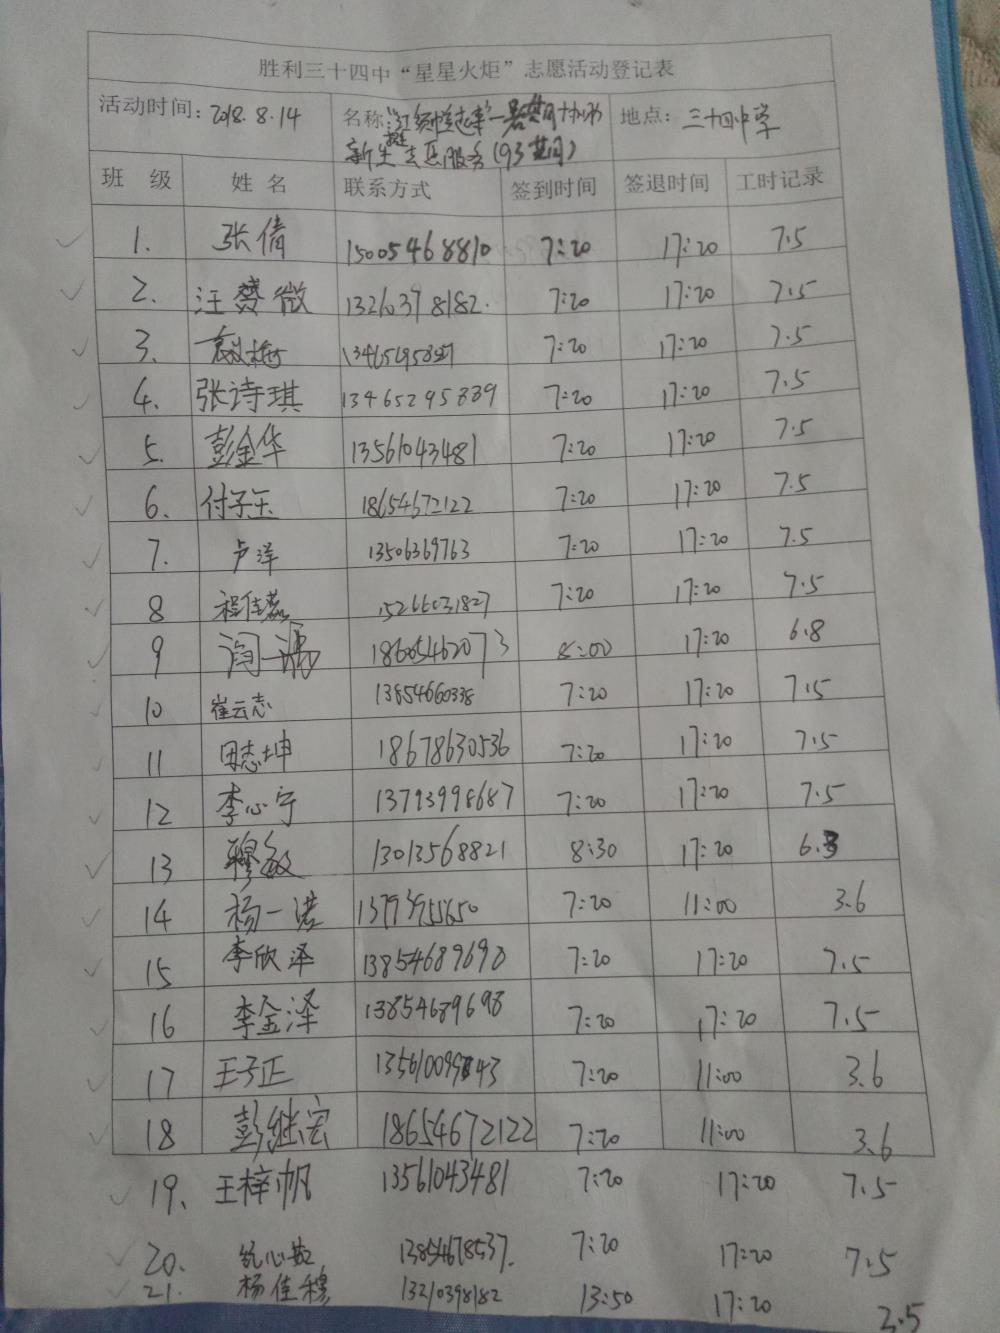 胜利三十四中“星星火炬”志愿活动登记表
活动时间：2018.8.14 名称： 地点：三十四中学
新生 志愿服务(93期)
班 级 姓 名 联系方式 签到时间 签退时间 工时记录
1. 张倩 15005468810 7:20 17:20 7.5
2. 汪赟微 13210398182. 7:20 17:20 7.5
3. 7:20 17:20 7.5
4. 张诗琪 13465295839 7:20 17:20 7.5
5. 彭金华 13561043481 7:20 17:20 7.5
6. 付子玉 18654672122 7:20 17:20 7.5
7. 卢洋 13506369763 7:20 17:20 7.5
8 程佳蕊 15266031827 7:20 17:20 7.5
9 18605462073 8:00 17:20 6.8
10 崔云志 13854660338 7:20 17:20 7.5
11 田志坤 18678630536 7:20 17:20 7.5
12 李心宇 13793998687 7:20 17:20 7.5
13 穆敏 13013568821 8:30 17:20 6.3
14 杨一诺 13793955650 7:20 11:00 3.6
15 李欣泽 13854689698 7:20 17:20 7.5
16 李金泽 13854689698 7:20 17:20 7.5
17 王子正 7:20 11:00 3.6
18 彭继宏 18654672122 7:20 11:00 3.6
19、 王梓帆 13561043481 7:20 17:20 7.5
20. 13854678537. 7:20 17:20 7.5
21. 杨佳穆 13210398182 13:50 17:20 3.5